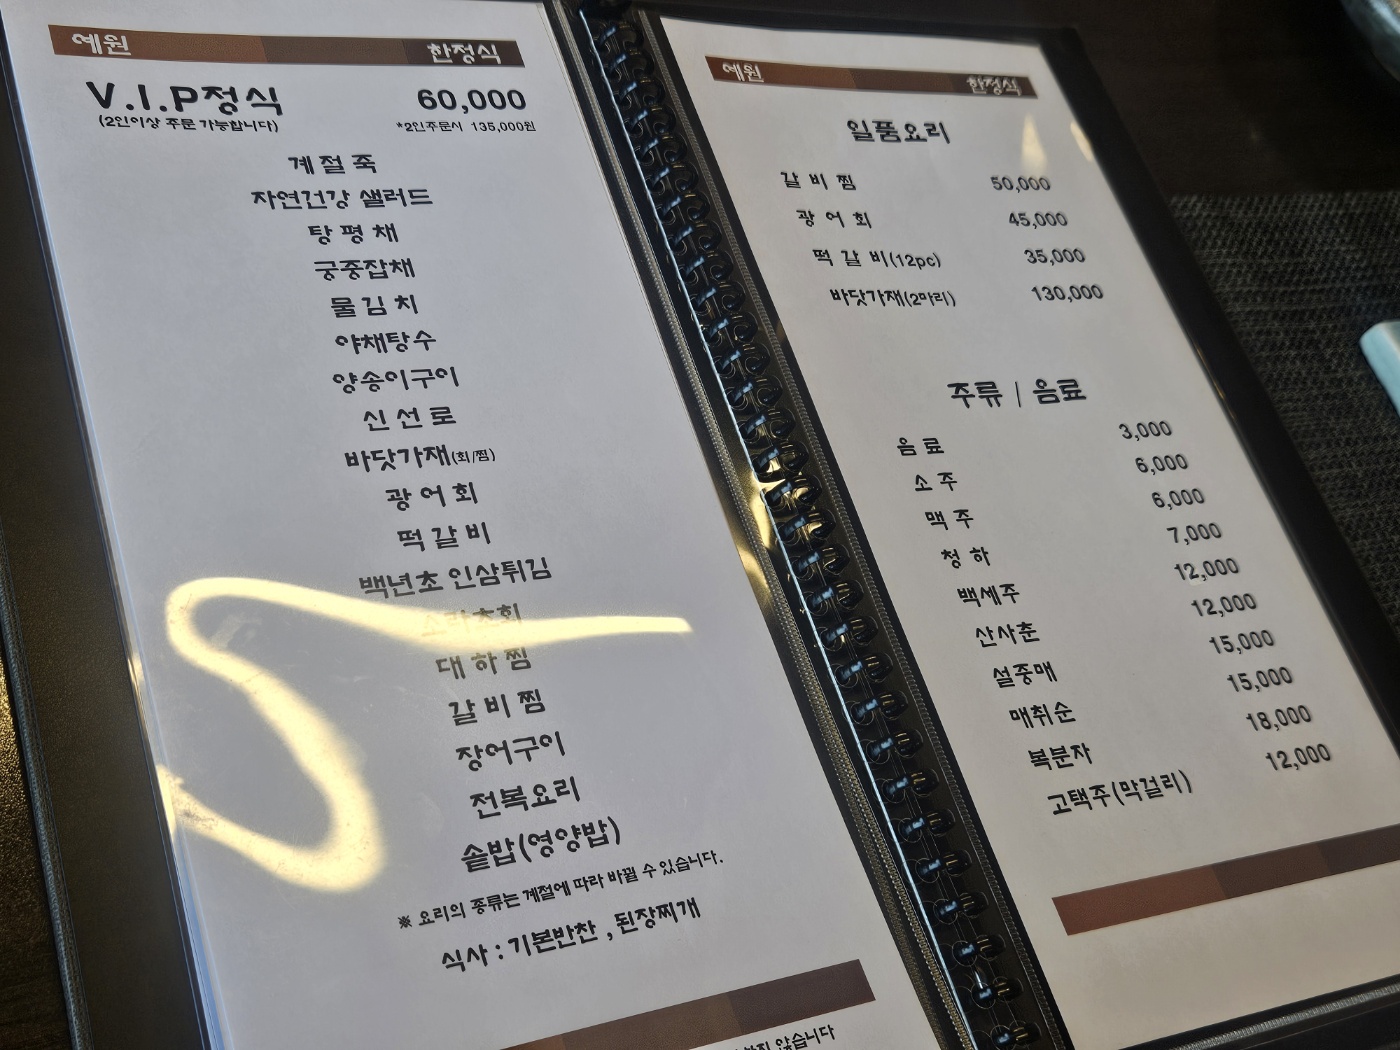 예원 한정식
V.I.P정식 60,000
(2인이상 주문 가능합니다) *2인주문시 135,000원
계절죽
자연건강 샐러드
탕평채
궁중잡채
물김치
야채탕수
양송이구이
신선로
바닷가재(회/찜)
광어회
떡갈비
백년초 인삼튀김
소라초회
대하찜
갈비찜
장어구이
전복요리
솥밥(영양밥)
※ 요리의 종류는 계절에 따라 바뀔 수 있습니다.
식사 : 기본반찬 , 된장찌개
않습니다
예원 한정식
일품요리
갈비찜 50,000
광어회 45,000
떡갈비(12pc) 35,000
바닷가재(2마리) 130,000
주류 | 음료
음료 3,000
소주 6,000
맥주 6,000
청하 7,000
백세주 12,000
산사춘 12,000
설중매 15,000
매취순 15,000
복분자 18,000
고택주(막걸리) 12,000